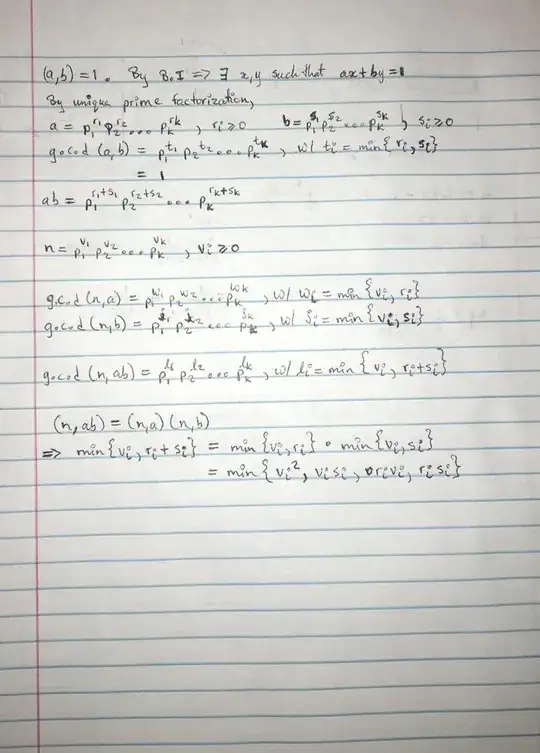 (a,b) = 1. By B.I => ∃ x,y such that ax + by = 1
By unique prime factorization,
a = p₁^r₁ p₂^r₂ ... pₖ^rₖ , rᵢ ≥ 0 b = p₁^s₁ p₂^s₂ ... pₖ^sₖ , sᵢ ≥ 0
g.c.d (a,b) = p₁^t₁ p₂^t₂ ... pₖ^tₖ , w/ tᵢ = min{rᵢ, sᵢ}
= 1
ab = p₁^(r₁+s₁) p₂^(r₂+s₂) ... pₖ^(rₖ+sₖ)
n = p₁^v₁ p₂^v₂ ... pₖ^vₖ , vᵢ ≥ 0
g.c.d (n,a) = p₁^w₁ p₂^w₂ ... pₖ^wₖ , w/ wᵢ = min{vᵢ, rᵢ}
g.c.d (n,b) = p₁^j₁ p₂^j₂ ... pₖ^jₖ , w/ jᵢ = min{vᵢ, sᵢ}
g.c.d (n, ab) = p₁^l₁ p₂^l₂ ... pₖ^lₖ , w/ lᵢ = min{vᵢ, rᵢ+sᵢ}
(n, ab) = (n,a) (n,b)
=> min{vᵢ, rᵢ + sᵢ} = min{vᵢ, rᵢ} · min{vᵢ, sᵢ}
= min{vᵢ², vᵢsᵢ, rᵢvᵢ, rᵢsᵢ}